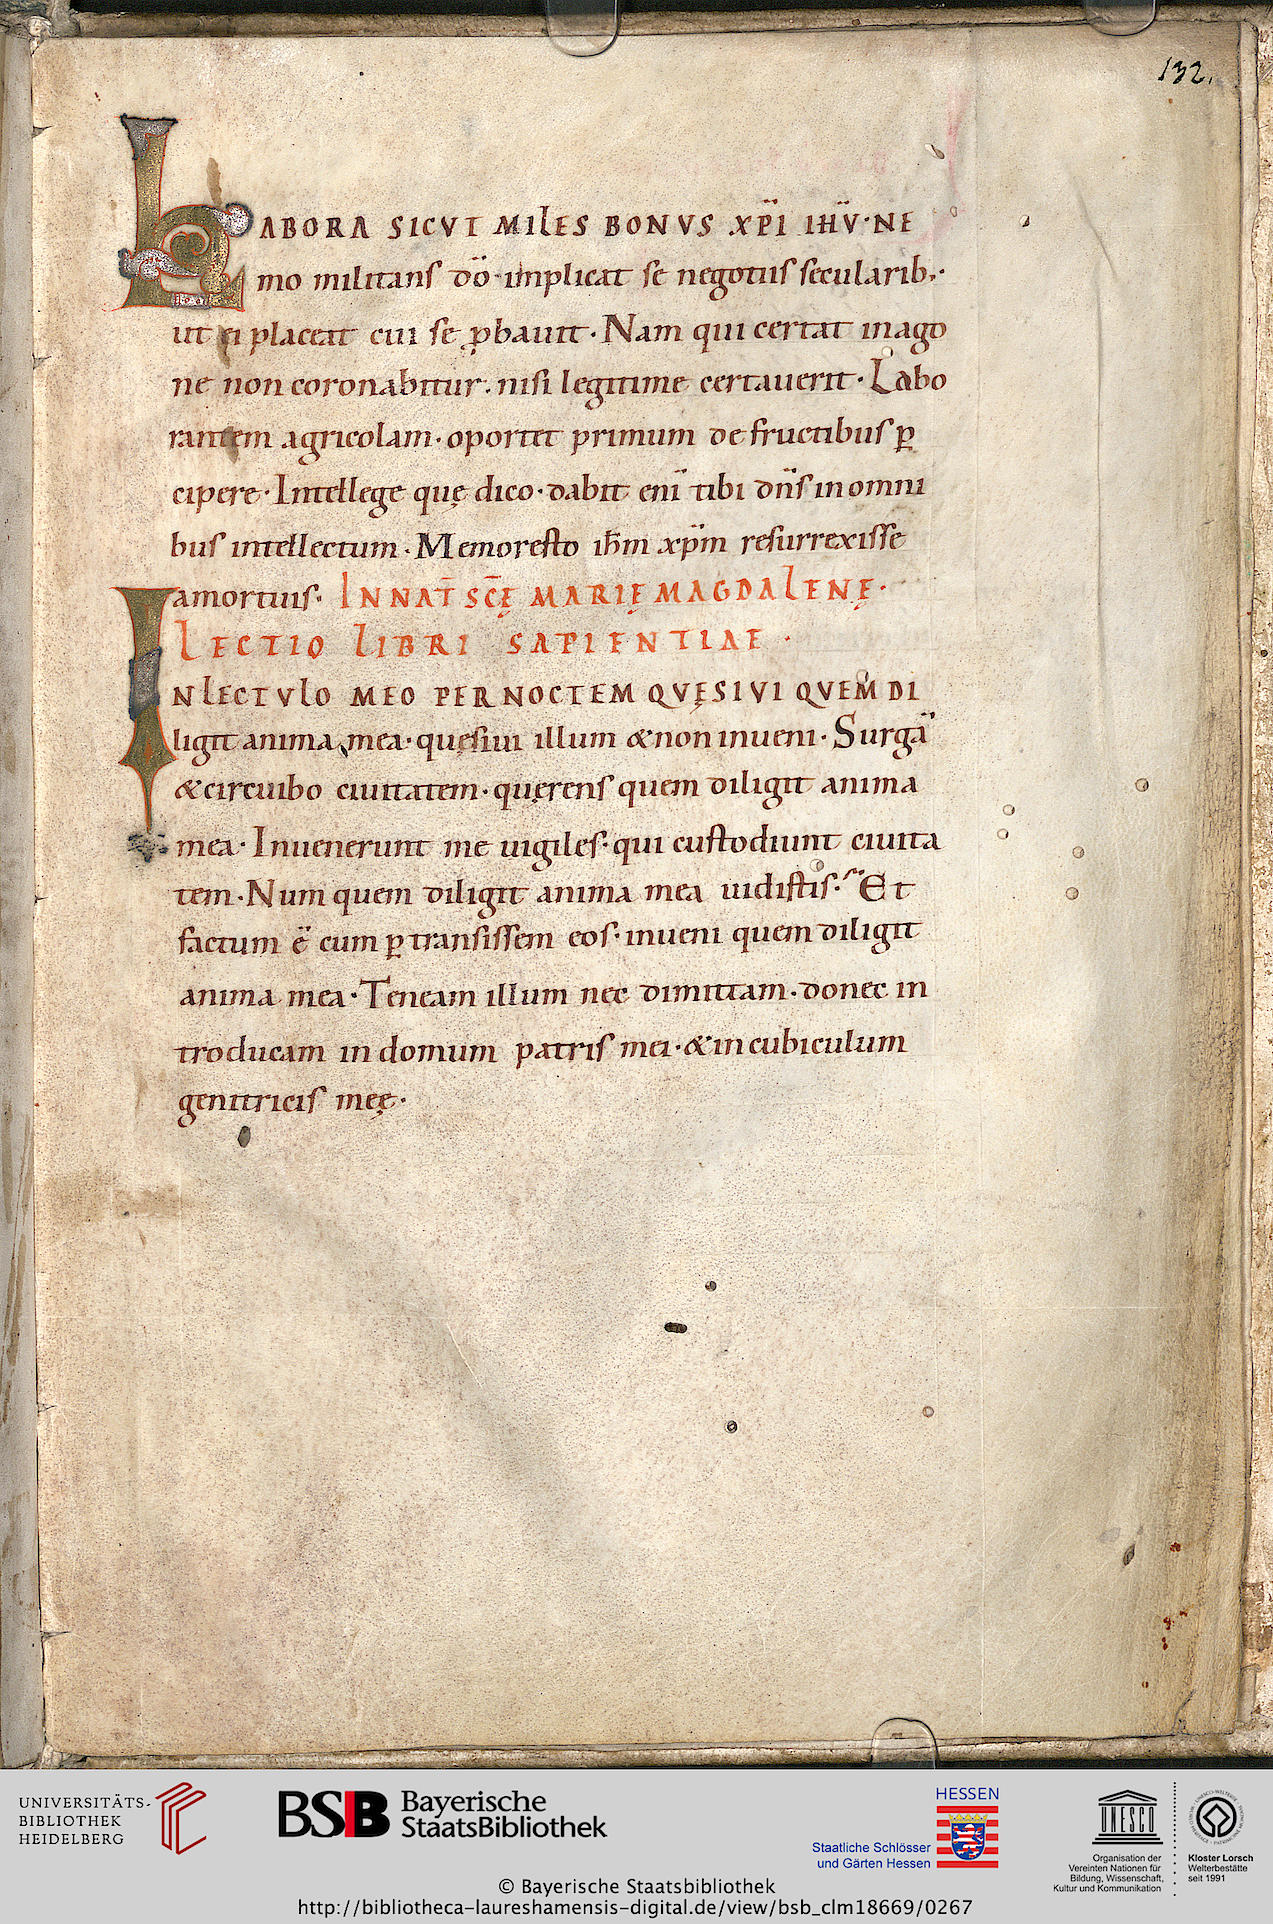 132.
LABORA SICVT MILES BONVS XP̈I IHV̈· NE
mo militans dö· implicat se negotiis secularib;·
ut ei placeat cui se ꝓbauit· Nam qui certat in ago
ne non coronabitur· nisi legitime certauerit· Labo
rantem agricolam· oportet primum de fructibus ꝑ
cipere· Intellege quę dico· dabit eni̅ tibi dn̅s in omni
bus intellectum· Memoresto ih̅m xp̅m resurrexisse
a mortuis· IN NAT̅ SC̅Ę MARIĘ MAGDALENĘ·
LECTIO LIBRI SAPIENTIAE·
IN LECTVLO MEO PER NOCTEM QVĘSIVI QVEM DI
ligit anima mea· quęsiui illum & non inueni· Surga̅
& circuibo ciuitatem· quęrens quem diligit anima
mea· Inuenerunt me uigiles· qui custodiunt ciuita
tem· Num quem diligit anima mea uidistis· Et
factum e̅ cum ꝑtransissem eos· inueni quem diligit
anima mea· Teneam illum nec dimittam· donec in
troducam in domum patris mei· & in cubiculum
genitricis meę·
UNIVERSITÄTS-
BIBLIOTHEK
HEIDELBERG
BSB Bayerische
StaatsBibliothek
HESSEN
Staatliche Schlösser
und Gärten Hessen
UNESCO
Organisation der
Vereinten Nationen für
Bildung, Wissenschaft,
Kultur und Kommunikation
Kloster Lorsch
Welterbestätte
seit 1991
© Bayerische Staatsbibliothek
http://bibliotheca-laureshamensis-digital.de/view/bsb_clm18669/0267